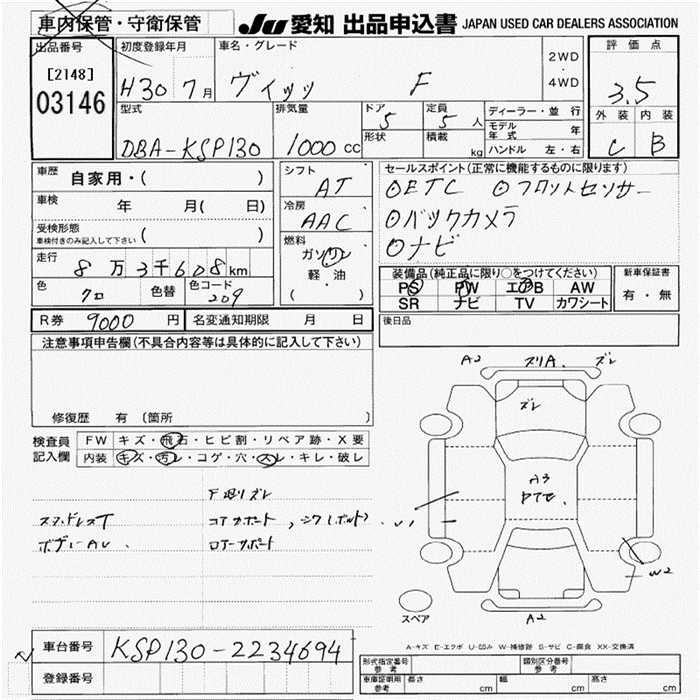 車内保管・守衛保管 JU 愛知 出品申込書 JAPAN USED CAR DEALERS ASSOCIATION
出品番号 初度登録年月 車名・グレード 評価点
[2148] H30 7月 ヴィッツ F 2WD・4WD 3.5
03146
型式 排気量 ドア 定員 ディーラー・並行 外装 内装
DBA-KSP130 1000cc 5 5人 モデル年式 年 C B
形状 積載 kg ハンドル 左・右
車歴 自家用・( ) シフト AT セールスポイント(正常に機能するものに限ります)
車検 年 月( 日) 冷房 AAC OETC Oフロントセンサー
受検形態 車検付きのみ記入して下さい ( ) Oバックカメラ
走行 8万3千608km 燃料 ガソリン Oナビ
色 クロ 色替 色コード 209 軽・油 ( ・ )
装備品(純正品に限り○をつけてください) 新車保証書
PS PW エアB AW 有・無
SR ナビ TV カワシート
R券 9000円 名変通知期限 月 日 後日品
注意事項申告欄(不具合内容等は具体的に記入して下さい)
修復歴 有 〔箇所 〕
検査員記入欄 FW キズ・飛石・ヒビ割・リペア跡・X要
内装 キズ・汚レ・コゲ・穴・スレ・キレ・破レ
A2 スリA. ズレ
ズレ
A3
W2
A2
スペア
コアサポート
ロアーサポート
車台番号 KSP130-2234694
登録番号
A-キズ E-エクボ U-凹み W-補修跡 S-サビ C-腐食 XX-交換済
形式指定番号 参考 類別区分番号 参考
車庫証明用 参考 長さ cm 幅 cm 高さ cm